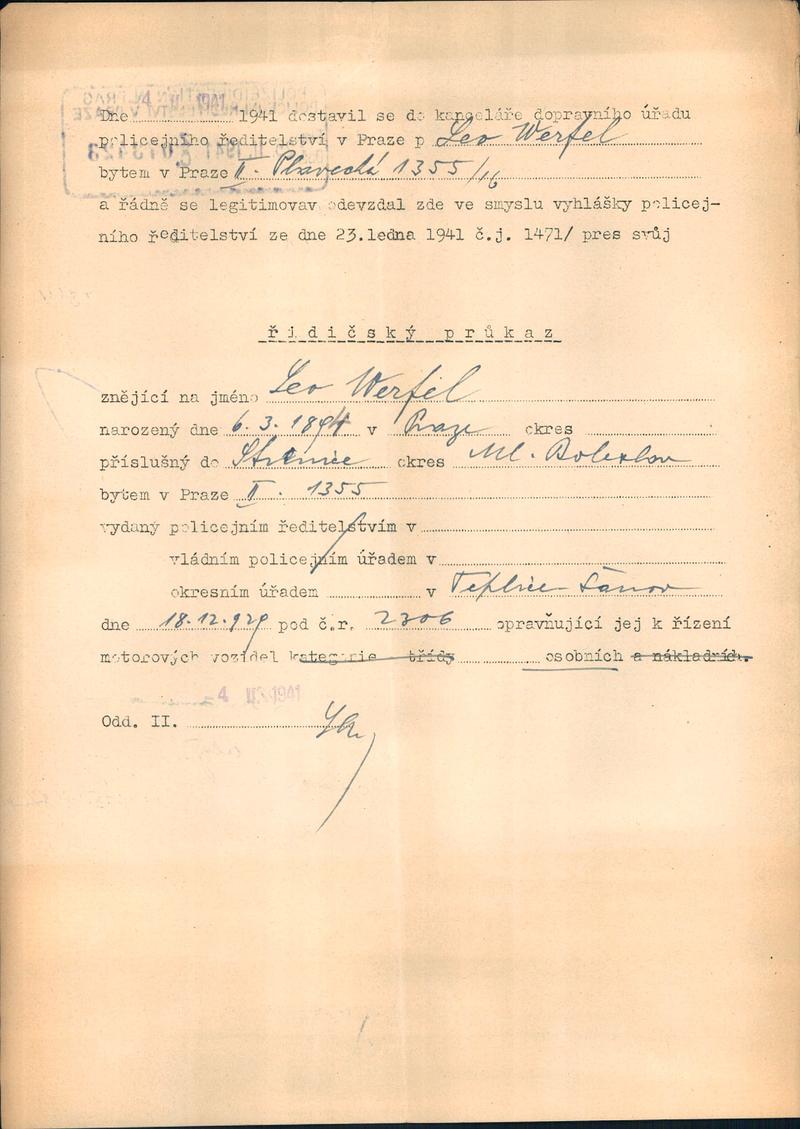 Dne 4 II 1941 1941 dostavil se do kanceláře dopravního úřadu
policejního ředitelství v Praze p Leo Werfel
bytem v Praze II. Plavecká 1355/16
a řádně se legitimovav odevzdal zde ve smyslu vyhlášky policej-
ního ředitelství ze dne 23.ledna 1941 č.j. 1471/ pres svůj
řidičský průkaz
znějící na jméno Leo Werfel
narozený dne 6.3.1894 v Praze okres
příslušný do okres Ml. Boleslav
bytem v Praze II. 1355
vydaný policejním ředitelstvím v
vládním policejním úřadem v
okresním úřadem v Teplice-Šanov
dne 18.12.929 pod č.r. 2306 opravňující jej k řízení
motorových vozidel kategorie třídy osobních a nákladních.
-4 II 1941
Odd. II.